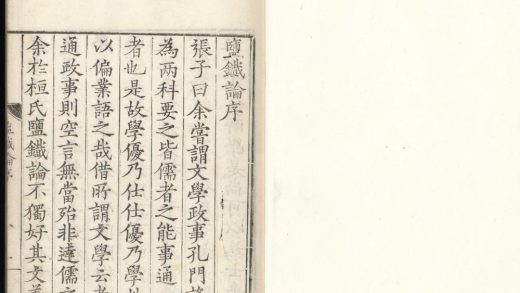 鹽鐡論序
張子曰余嘗謂文學政事孔門
為两科要之皆儒者之能事通
者也是故學優乃仕仕優乃學
以偏業語之哉借所謂文學云者
通政事則空言無當殆非達儒之
余於桓氏鹽鐡論不獨好其文